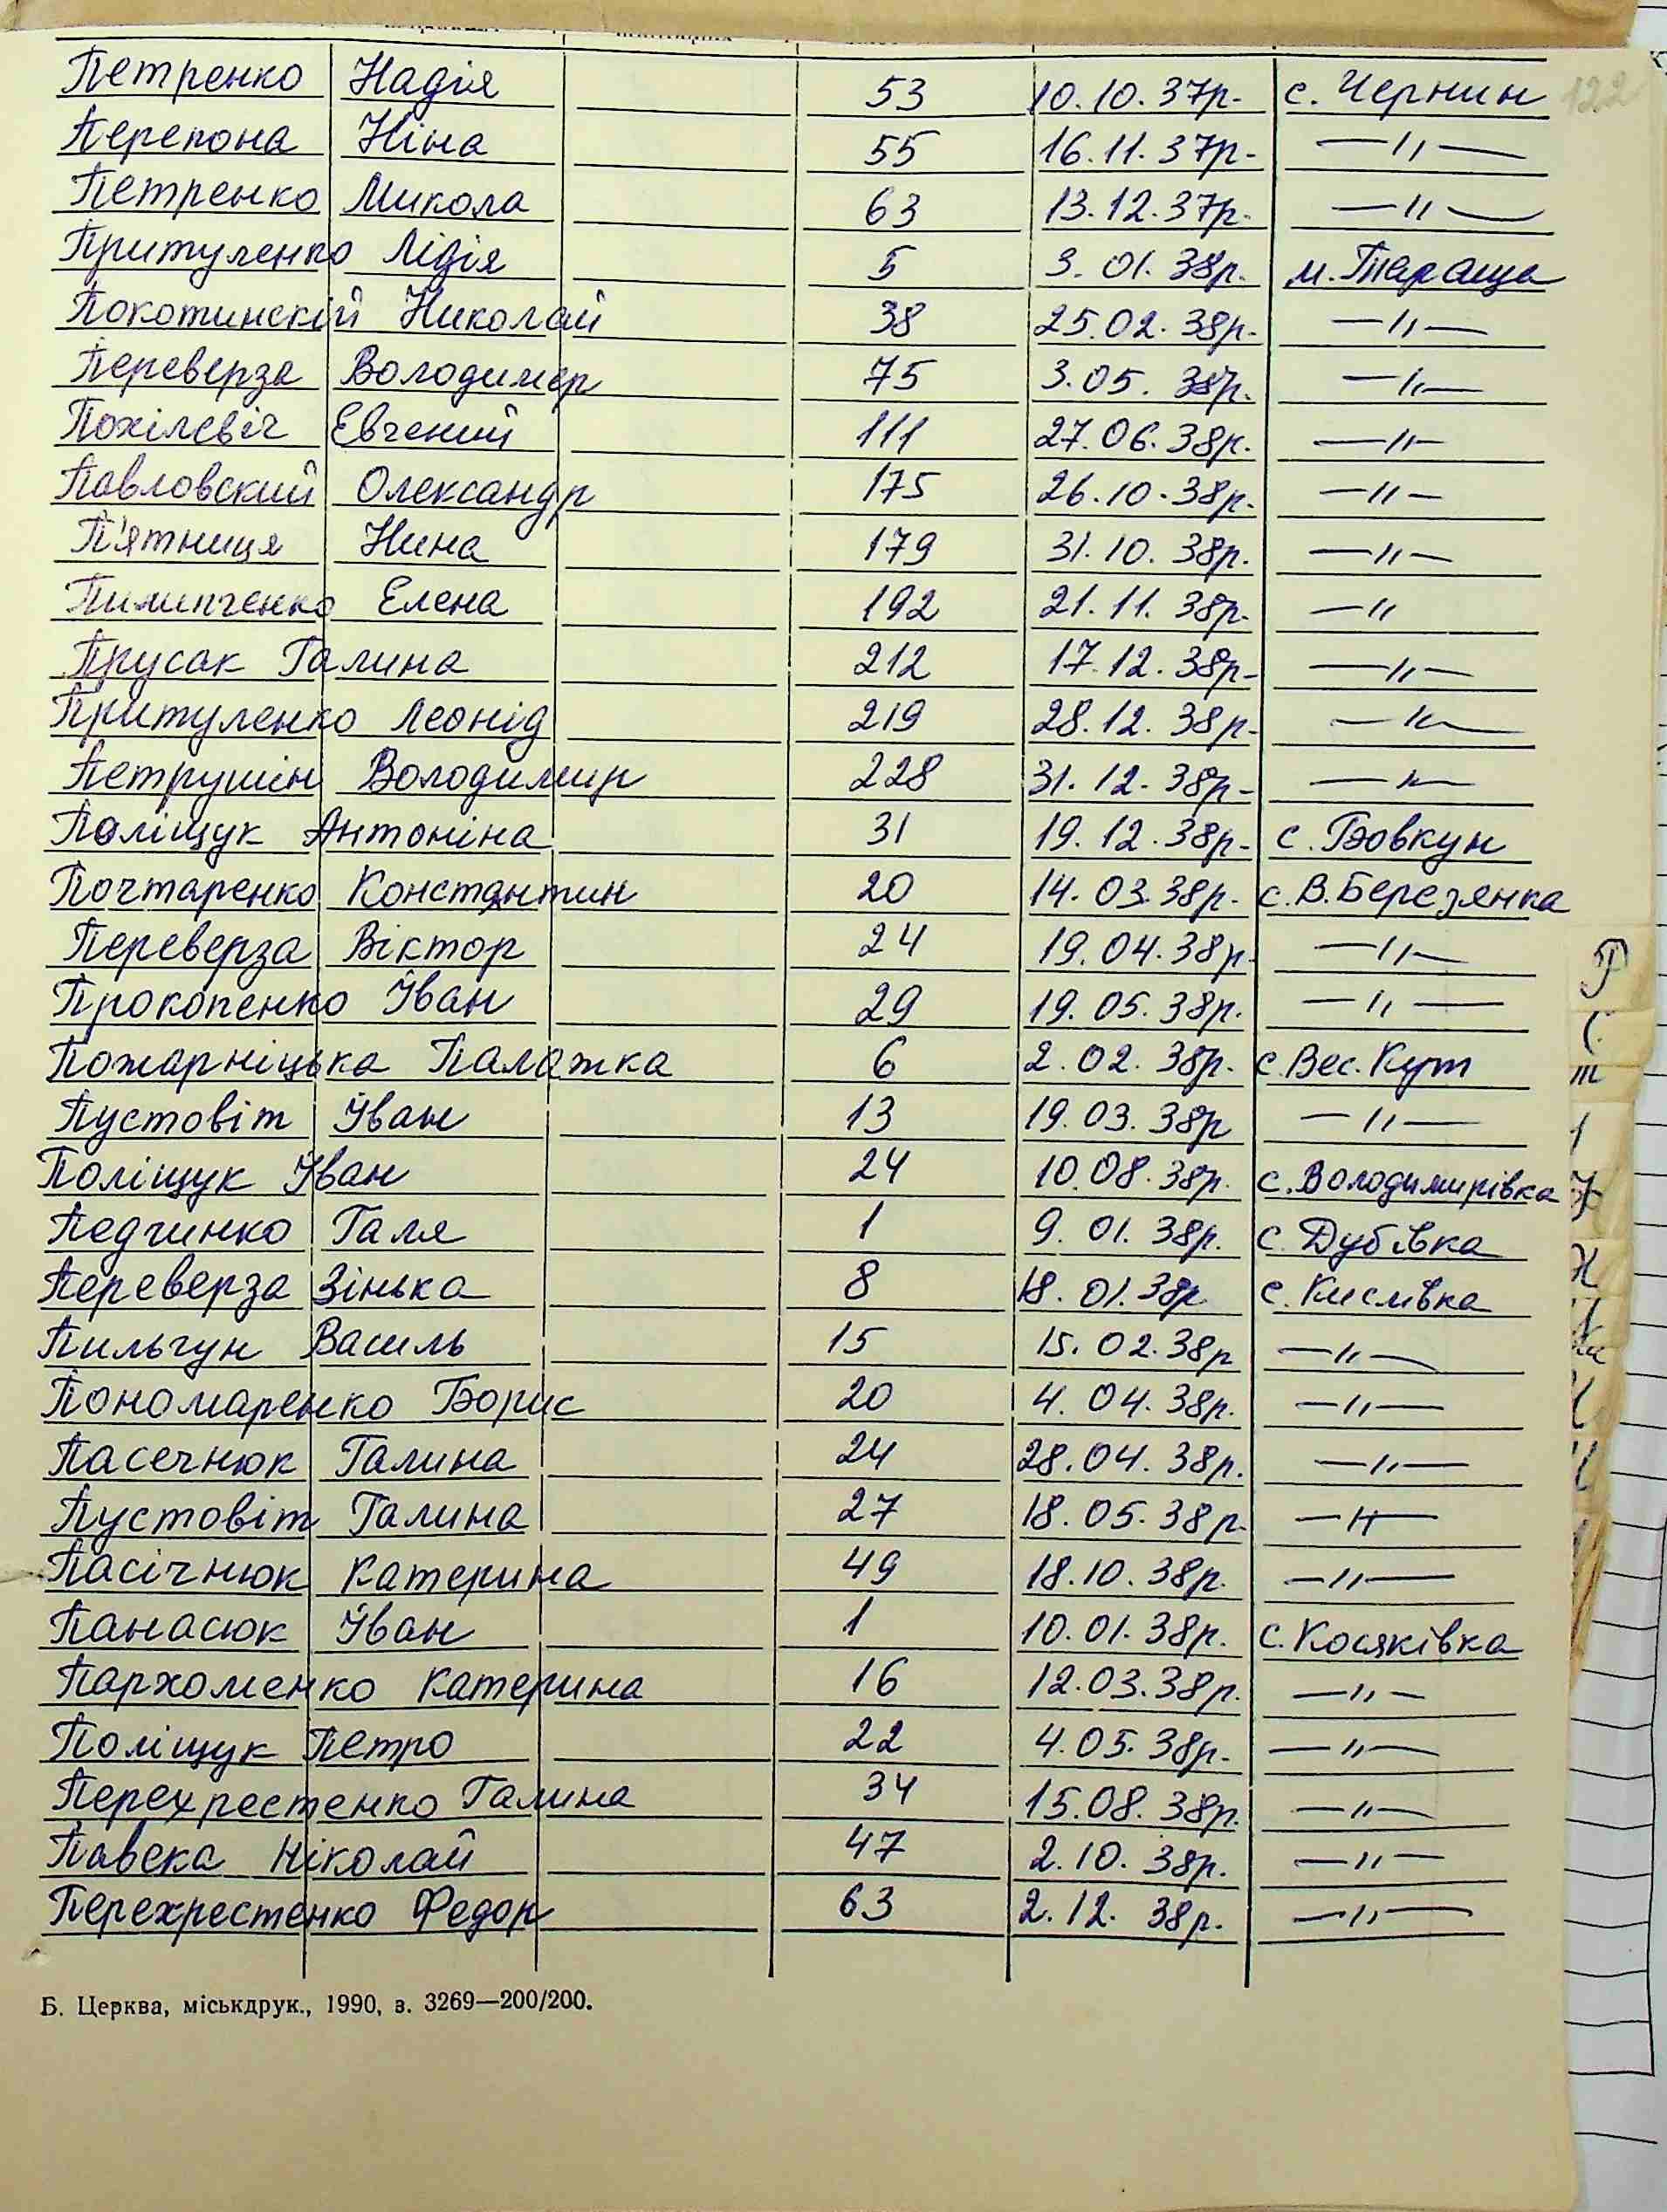 Петренко Надія 53 10.10.37р. с. Чернин 122
Перепона Ніна 55 16.11.37р. —〃—
Петренко Микола 63 13.12.37р. —〃—
Притуленко Лідія 5 3.01.38р. м. Тараща
Покотинскій Николай 38 25.02.38р. —〃—
Переверза Володимер 75 3.05.38р. —〃—
Похілевіч Евгений 111 27.06.38р. —〃—
Павловский Олександр 175 26.10.38р. —〃—
П'ятниця Нина 179 31.10.38р. —〃—
Пилипченко Елена 192 21.11.38р. —〃
Прусак Галина 212 17.12.38р. —〃—
Притуленко Леонід 219 28.12.38р. —〃—
Петрушін Володимир 228 31.12.38р. —〃—
Поліщук Антоніна 31 19.12.38р. с. Бовкун
Почтаренко Константин 20 14.03.38р. с. В. Березянка
Переверза Віктор 24 19.04.38р. —〃—
Прокопенко Іван 29 19.05.38р. —〃—
Пожарніцька Палажка 6 2.02.38р. с. Вес. Кут
Пустовіт Іван 13 19.03.38р —〃—
Поліщук Іван 24 10.08.38р. с. Володимирівка
Педчинко Галя 1 9.01.38р. с. Дубівка
Переверза Зінька 8 18.01.38р с. Кислівка
Пильгун Василь 15 15.02.38р —〃—
Пономаренко Борис 20 4.04.38р. —〃—
Пасечнюк Галина 24 28.04.38р. —〃—
Пустовіт Галина 27 18.05.38р. —〃—
Пасічнюк Катерина 49 18.10.38р. —〃—
Панасюк Іван 1 10.01.38р. с. Косяківка
Пархоменко Катерина 16 12.03.38р. —〃—
Поліщук Петро 22 4.05.38р. —〃—
Перехрестенко Галина 34 15.08.38р. —〃—
Павека Ніколай 47 2.10.38р. —〃—
Перехрестенко Федор 63 2.12.38р. —〃—
Б. Церква, міськдрук., 1990, з. 3269—200/200.